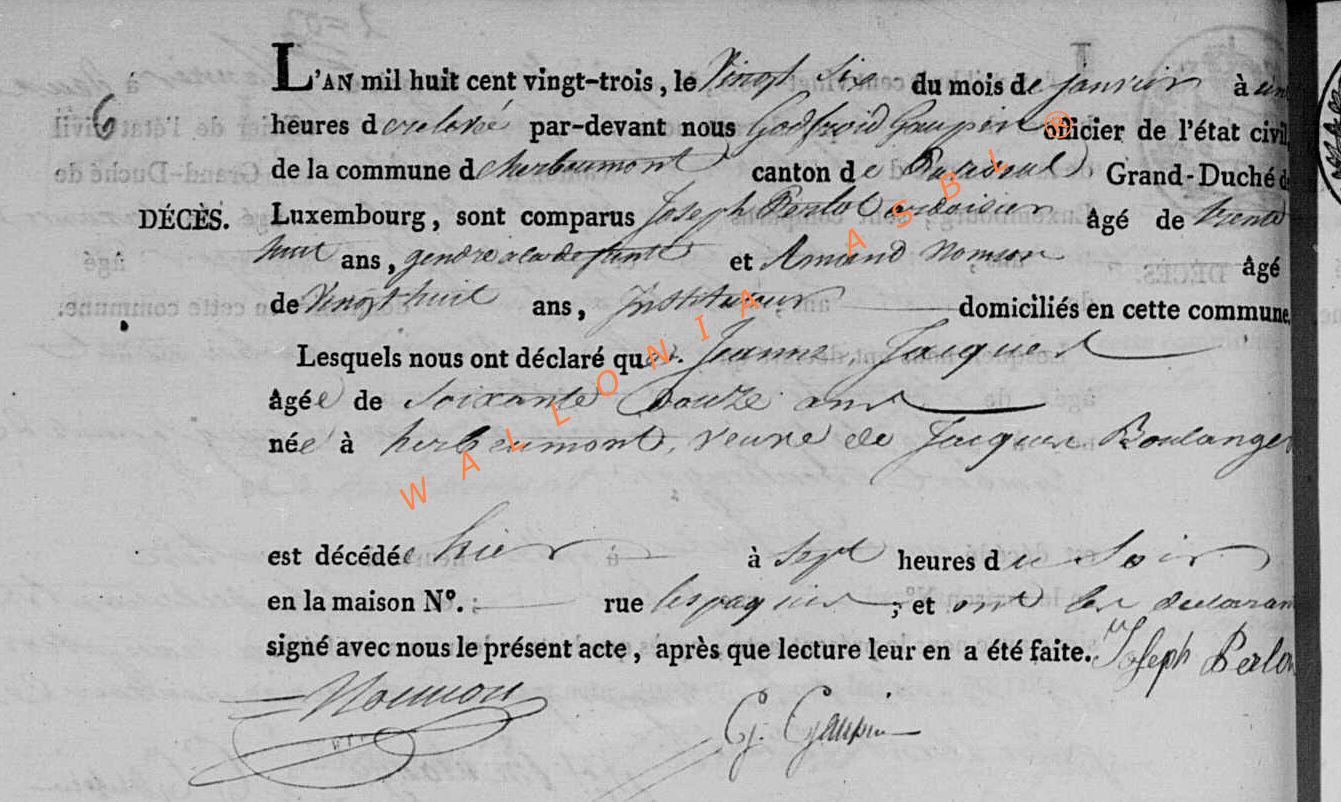 L'AN mil huit cent vingt-trois, le Vingt Six du mois de janvier à une
6
heures de relevé par-devant nous Godfroid Gaupin officier de l'état civil,
de la commune d'herbeumont canton de Paliseul Grand-Duché de
DÉCÈS. Luxembourg, sont comparus Joseph Perlot ardoisier âgé de trente
huit ans, gendre a la defunte et Amand Nomion âgé
de Vingt huit ans, Instituteur domiciliés en cette commune,
Lesquels nous ont déclaré que. Jeanne Jacques
âgée de soixante Douze ans
née à herbeumont, veuve de Jacques Boulanger
est décédée hier à Sept heures du Soir
en la maison N°. : rue lespaquis ; et ont les declarans
signé avec nous le présent acte, après que lecture leur en a été faite. Joseph Perlot
G. Gaupin
WALLONIA ASBL ®